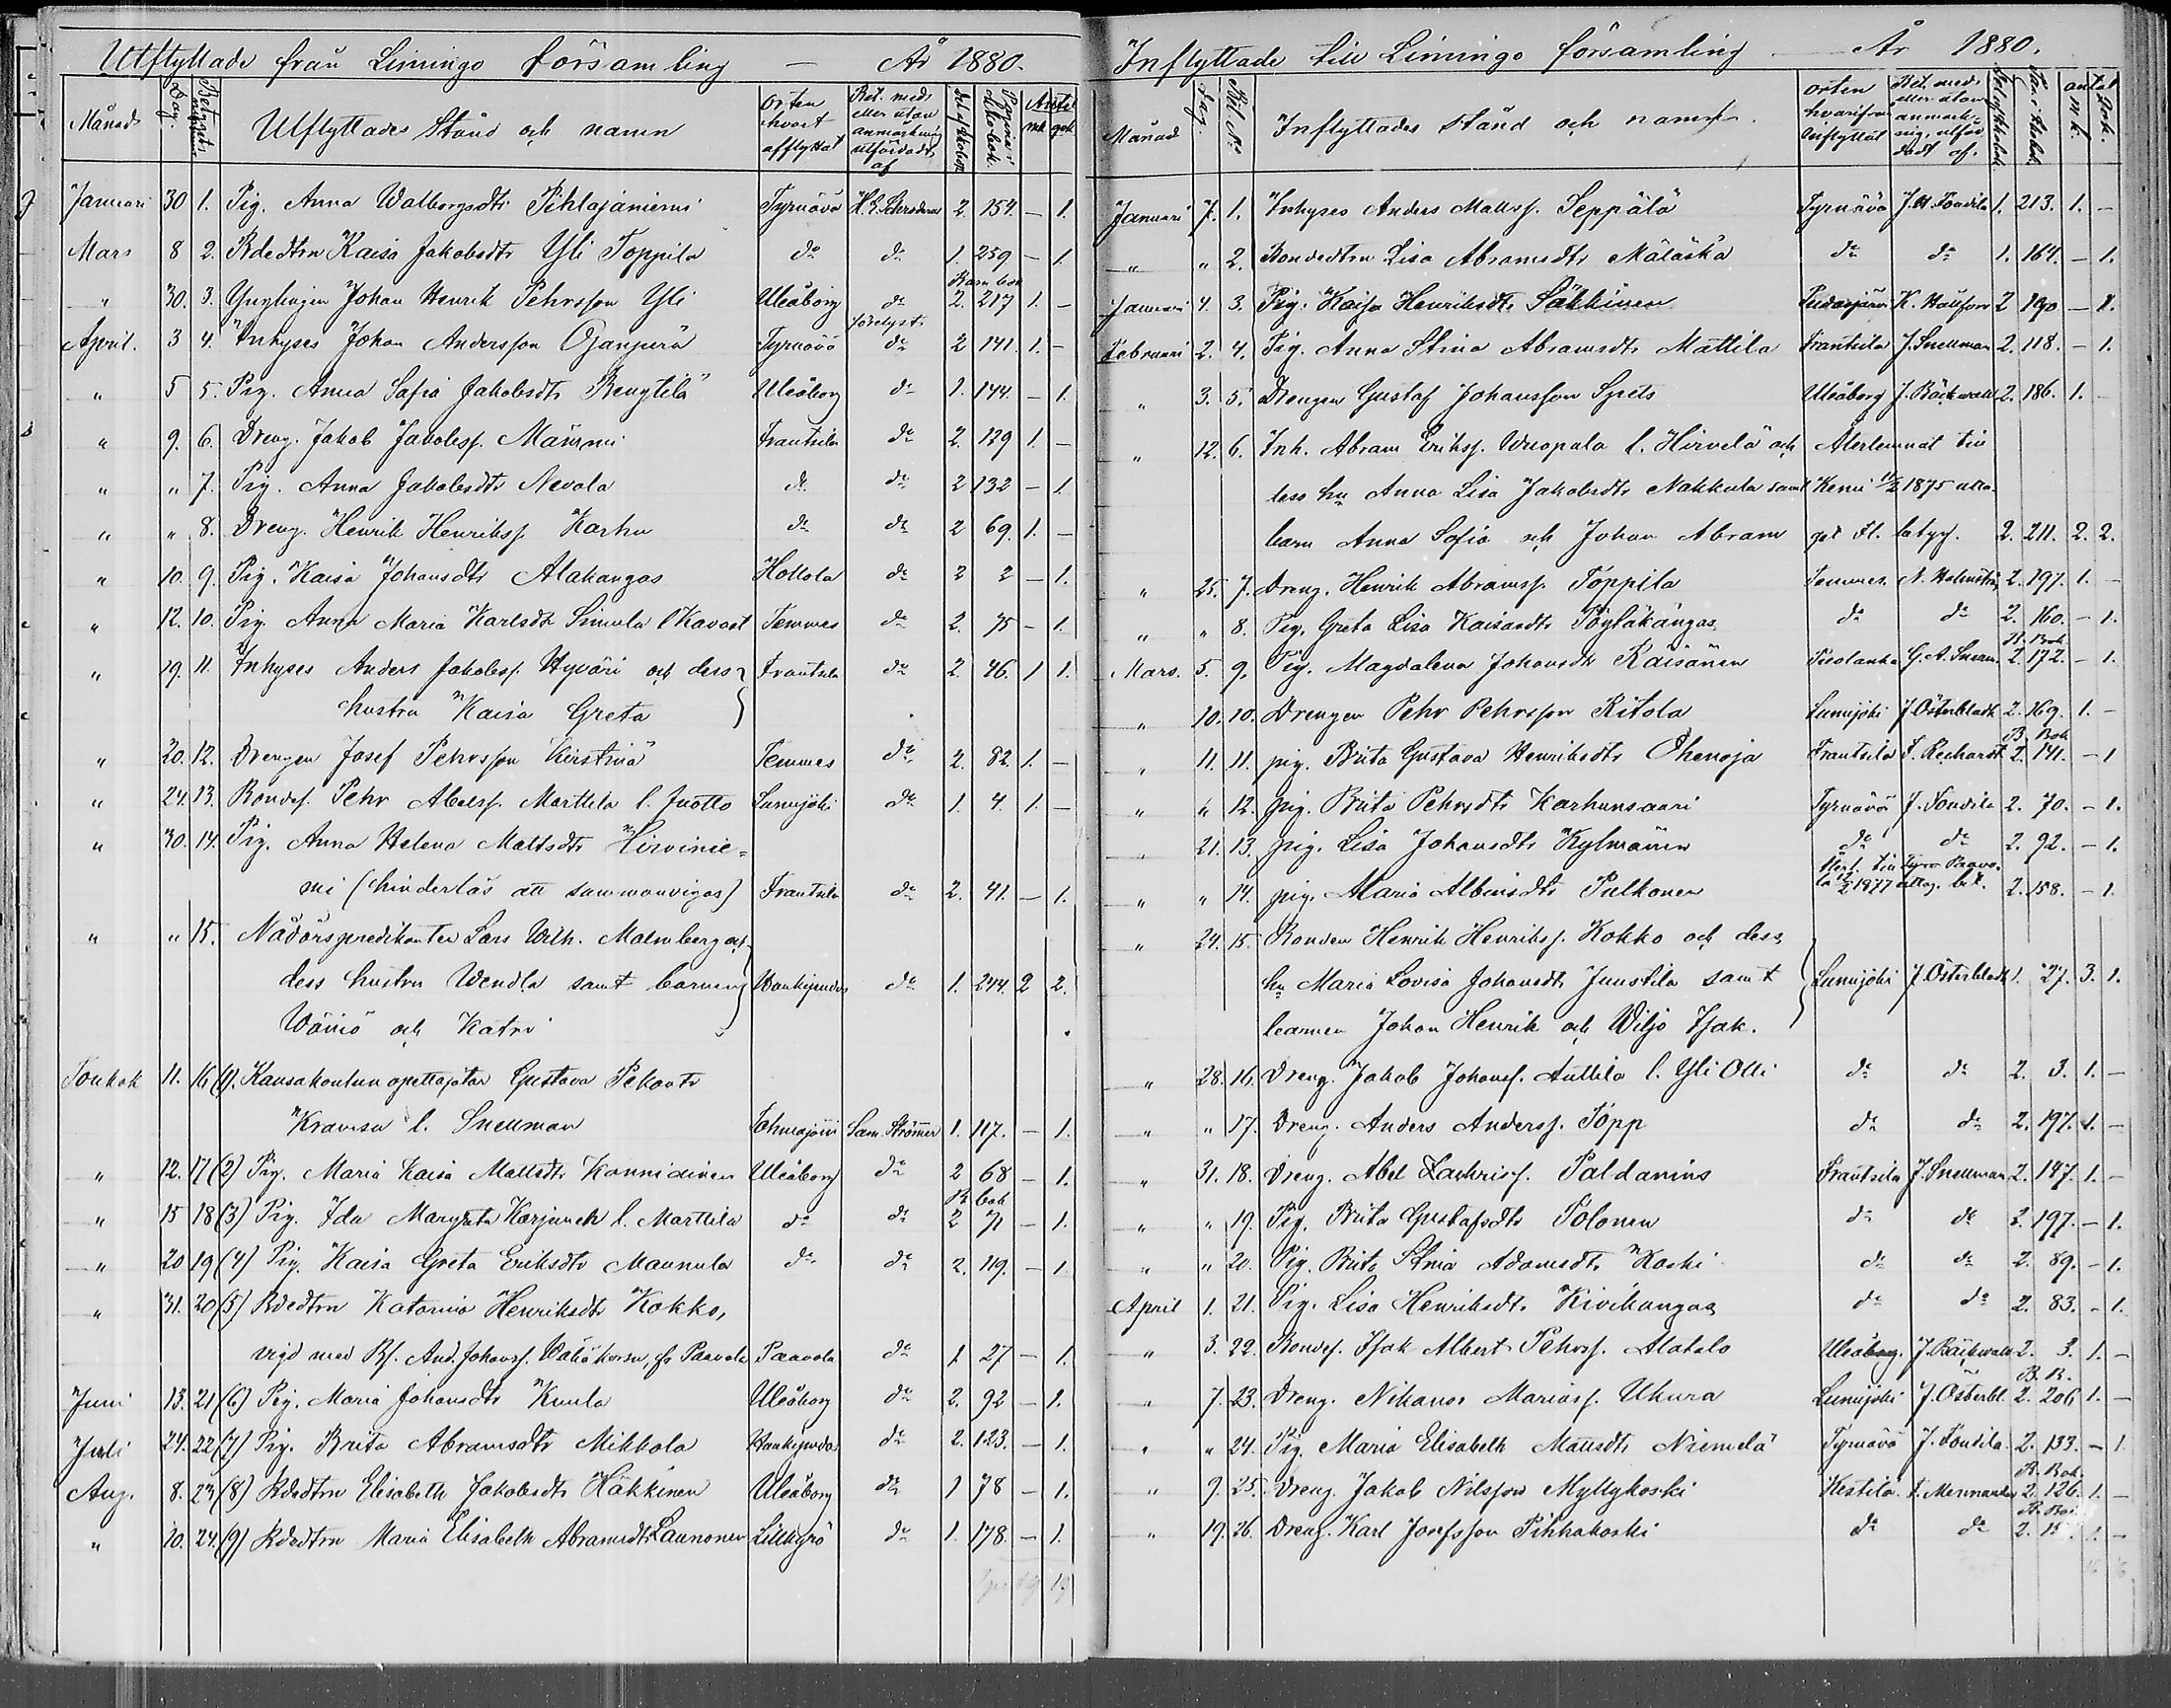 Utflyttade från Limingo församling — År 1880.
Månad Dag. Betygets Utflyttades Stånd och namn Orten hvart afflyttat Bet. med eller utan anmärkning utfördadt af Del af Kb. Pagina i Kyrkobok. Antal mk qk
Januari 30 1. Pig. Anna Walborgsdtr Pihlajaniemi Tyrnävä 2. 154. — 1.
Mars 8 2. Bdedtrn Kaisa Jakobsdtr Yli Toppila do do 1. 259 — 1.
Barnbok
" 30. 3. Ynglingen Johan Henrik Pehrsson Yli Uleåborg do 2. 217 1. —
förelyst
April. 3 4. Inhyses Johan Andersson Ojanperä Tyrnävä do 2 141. 1. —
" 5 5. Pig. Anna Sofia Jakobsdtr Rengtilä Uleåborg do 1. 144. — 1.
" 9. 6. Dreng. Jakob Jakobss. Frantsila do 2. 129 1. —
" " 7. Pig. Anna Jakobsdtr Nevala do do 2 132 — 1.
" " 8. Dreng. Henrik Henrikss. Karhu do do 2 69. 1. —
" 10. 9. Pig. Kaisa Johansdtr Alakangas Hollola do 2 2 — 1.
" 12. 10. Pig. Anna Maria Karlsdtr Simula l. Kavast Temmes do 2. 75 — 1.
" 19. 11. Inhyses Anders Jakobss. Hyväri och dess Frantsila do 2. 46. 1 1.
hustru Kaisa Greta
" 20. 12. Drengen Josef Pehrsson Kerstinä Temmes do 2. 82. 1. —
" 24. 13. Bondes. Pehr Abelss. Marttila l. Juotto Lumijoki do 1. 4. 1. —
" 30. 14. Pig. Anna Helena Mattsdtr Hirvinie=
mi (hinderlös att sammanvigas) Frantsila do 2. 41. — 1.
" " 15. Nådårspredikanten Lars Wilh. Malmberg och
dess hustru Wendla samt barnen Haukipudas do 1. 244. 2 2.
Wäinö och Katri
Toukok 11. 16 (1). Kansakoulun opettajatar Gustava Pekont:
Kramsu l. Snellman Tohmajärvi Sam. Strömmer 1. 117. — 1.
" 12. 17 (2) Pig. Maria Kaisa Mattsdtr Kanniainen Uleåborg do 2 68 — 1.
B bok
" 15 18 (3) Pig. Ida Margreta Karjunen l. Marttila do do 2 71 — 1.
" 20 19 (4) Pig. Kaisa Greta Eriksdtr Maunula do do 2. 119. — 1
" 31. 20 (5) Bdedtrn Katarina Henriksdtr Kokko,
vigd med Bs. And. Johanss. fr Paavola Paavola do 1 27 — 1.
Juni 13. 21 (6) Pig. Maria Johansdtr Kuula Uleåborg do 2. 92 — 1.
Juli 24. 22 (7) Pig. Brita Abramsdtr Mikkola Haukipudas do 2. 123. — 1.
Aug. 8. 23 (8) Bdedtrn Elisabeth Jakobsdtr Häkkinen Uleåborg do 1 78 — 1.
" 10. 24. (9) Bdedtrn Maria Elisabeth Abramsdtr Launonen Lillkyrö do 1. 178. — 1.
19 19
Inflyttade till Limingo församling — År 1880.
Månad Dag. Bil. No. Inflyttades stånd och namn. orten hvarifrån inflyttat Bet. med eller utan anmärkning, utfärdadt af. antal mk. qvk.
Januari 7. 1. Inhyses Anders Mattss. Seppälä Tyrnävä J. M. Toudila 1. 213. 1. —
" " 2. Bondedtrn Lisa Abramsdtr Mäläskä do do 1. 164. — 1.
Januari 4. 3. Pig. Kaisa Henriksdtr Säkkinen Pudasjärvi K. Hällfors 2 190 — 1.
Februari 2. 4. Pig. Anna Stina Abramsdtr Mattila Frantsila J. Snellman 2. 118. — 1.
" 3. 5. Drengen Gustaf Johansson Sprets Uleåborg J. Bäckwall 2. 186. 1. —
" 12. 6. Inh. Abram Erikss. Wuopala l. Hirvelä och Återlemnat till
dess hu Anna Lisa Jakobsdtr Nakkula samt Kemi 1875 utta-
barn Anna Sofia och Johan Abram get fl. betyg. 2. 211. 2. 2.
" 25. 7. Dreng. Henrik Abramss. Toppila Temmes. N. Holmström 2. 197. 1. —
" " 8. Pig. Greta Lisa Kaisasdtr Pöyläkangas do do 2. 160. — 1.
B. Bok
Mars. 5. 9. Pig. Magdalena Johansdtr Räisänen Puolanka G. A. Snellm. 2. 172. — 1.
" 10. 10. Drengen Pehr Pehrsson Ritola Lumijoki J. Österbladh 2. 169. 1. —
B. Bok
" 11. 11. pig. Brita Gustava Henriksdtr Ohenoja Frantsila F. Rechardt 2. 141. — 1
" " 12. pig. Brita Pehrsdtr Karhunsaari Tyrnävä J. Toudila 2. 70. — 1.
" 21. 13. pig. Lisa Johansdtr Kylmänen do do 2. 92. — 1.
" " 14. pig. Maria Albinsdtr Pulkonen 1877 uttag. bet. 2. 158. — 1.
" 24. 15. Bonden Henrik Henrikss. Kokko och dess
hu Maria Lovisa Johansdtr Junttila samt Lumijoki J. Österbladh 1. 27. 3. 1.
barnen Johan Henrik och Wiljo Isak.
" 28. 16. Dreng. Jakob Johanss. Anttila l. Yli Olli do do 2. 3. 1. —
" " 17. Dreng. Anders Anderss. Topp do do 2. 197. 1. —
" 31. 18. Dreng. Abel Zachriss. Paldanius Frantsila J. Snellman 2. 147. 1. —
" " 19. Pig. Brita Gustafsdtr Polonen do do 2. 197. — 1.
" " 20. Pig. Brita Stina Adamsdtr Koski do do 2. 89. — 1.
April 1. 21. Pig. Lisa Henriksdtr Kivikangas do do 2. 83. — 1.
" 3. 22. Bondes. Isak Albert Pehrss. Alatalo Uleåborg. J. Bäckwall 2. 3. 1. —
B. B.
" 7. 23. Dreng. Nikanor Mariass. Ukura Lumijoki J. Österbl. 2. 206 1. —
" " 24. Pig. Maria Elisabeth Mattsdtr Niemelä Tyrnävä J. Toudila. 2. 133. — 1.
B. Bok.
" 9. 25. Dreng. Jakob Nilsson Myllykoski Kestilä F. Mennander 2. 126. 1. —
B. Bok.
" 19. 26. Dreng. Karl Josefsson Pihkakoski do do 2. 1. —